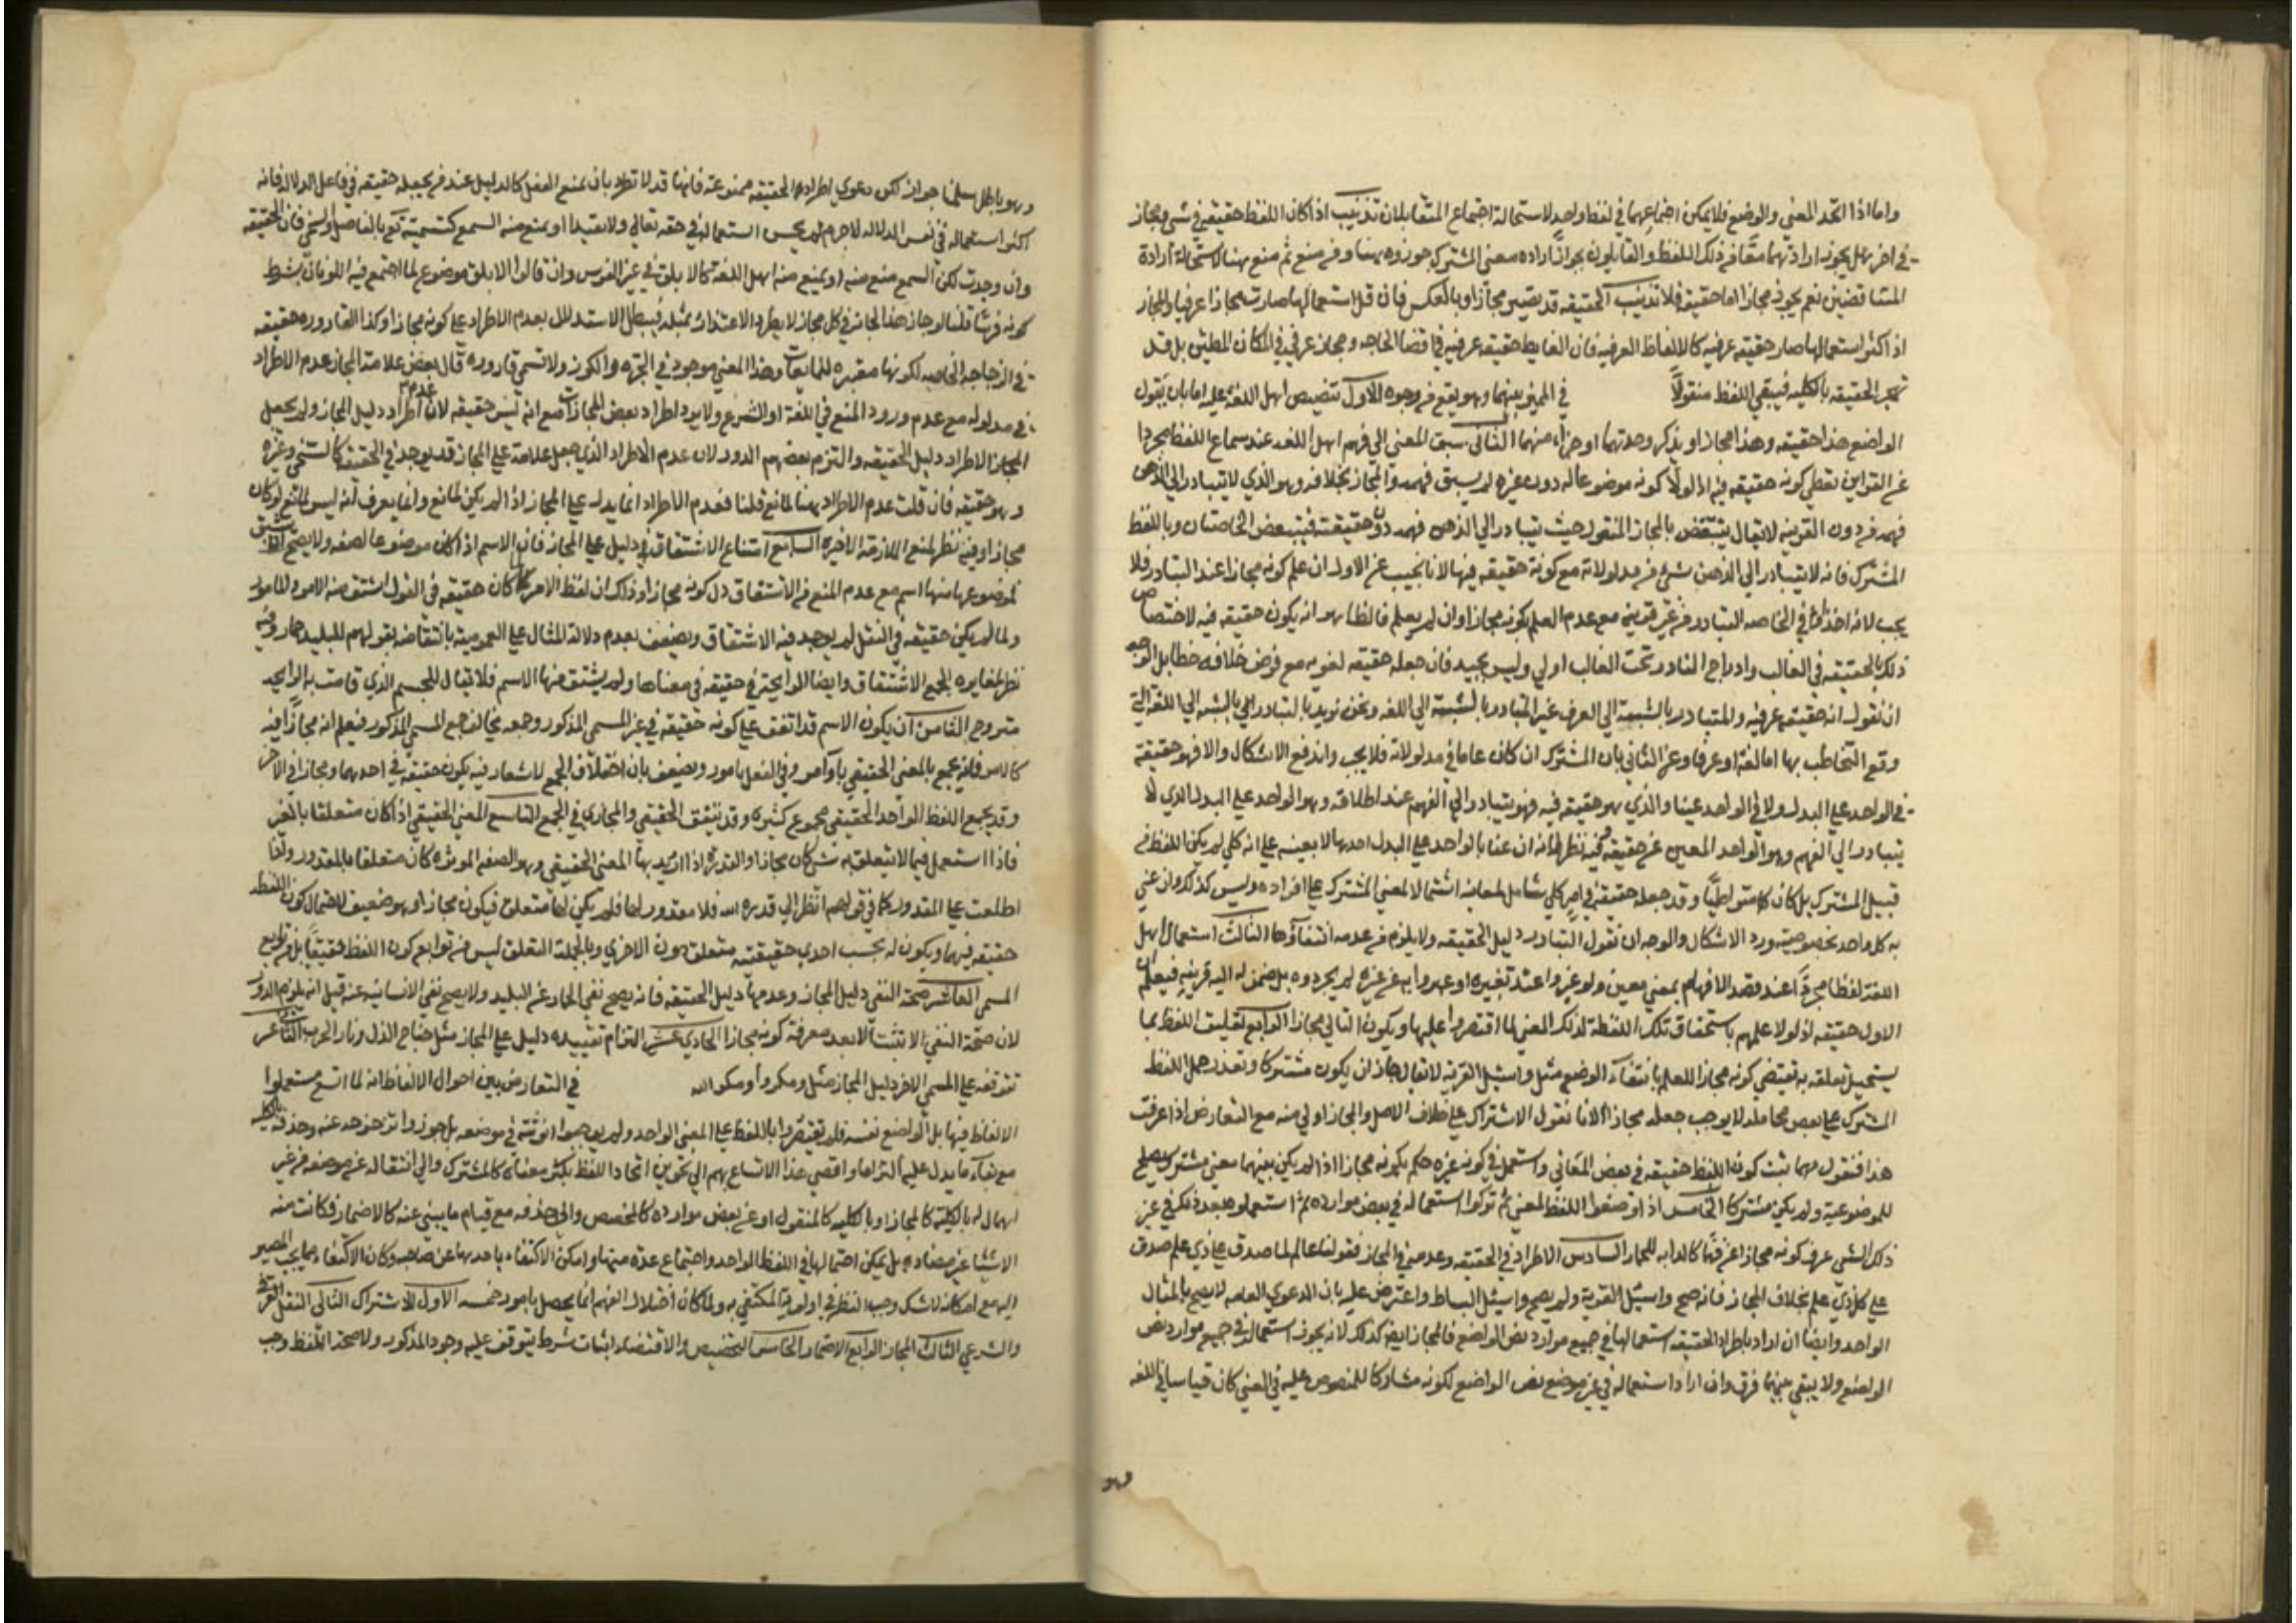 واما اذا اتحد المعني والوضع فلا يمكن اجتماعهما في لفظ واحد لاستحالة اجتماع المتقابلان تذنيب اذا كان اللفظ حقيقة في شي ومجاز
في اخر هل يجوز ارادتهما معا من ذلك اللفظ والقايلون بجواز ارادة معني المشترك جوزوه بهنا ومن منع ثم منع بهنا لاستحالة ارادة
المتناقضين نعم يجوز مجازا اما حقيقة فلا تذنيب الحقيقه قد تصير مجازا وبالعكس فان قل استعمالها صارت مجازا عرفيا والمجاز
اذا كثر استعمالها صار حقيقه عرفيه كالالفاظ العرفيه فان الغايط حقيقه عرفيه في قضا الحاجه ومجاز عرفي في المكان المطمئن بل قد
تهجر الحقيقه بالكليه فيبقي اللفظ منقولا في المميز بينهما وهو يقع من وجوه الاول تنصيص اهل اللغة عليه اما بان يقول
الواضع هذا حقيقه وهذا مجاز او يذكر وحدتهما او جزا منهما الثاني سبق المعني الي فهم اهل اللغه عند سماع اللفظ مجردا
عن القراين يعطي كونه حقيقه فيه اذ لولا كونه موضوعا له دون غيره لم يسبق فهمه والمجاز بخلافه وهو الذي لا يتبادر الي الذهن
فهمه من دون القرينه لا يقال ينتقض بالمجاز المنقول حيث يتبادر الي الذهن فهمه دون حقيقته فيتبعض الخاصتان وباللفظ
المشترك فانه لا يتبادر الي الذهن شي من مدلولاته مع كونه حقيقه فيها لانا نجيب عن الاول ان علم كونه مجازا عند التبادر فلا
يجب لانه اخذ في الخاصه التبادر من غير قرينه مع عدم العلم بكونه مجازا وان لم يعلم فالظاهر انه يكون حقيقه فيه لاختصاص
ذلك بالحقيقه في الغالب وادراج النادر تحت الغالب اولي وليس بجيد فان جعله حقيقه لغويه مع فرض خلافه خطا بل الوجه
ان نقول انه حقيقه عرفيه والمتبادر بالنسبة الي العرف غير المتبادر بالنسبة الي اللغه ونحن نريد بالتبادر الي بالنسبه الي اللغة التي
وقع التخاطب بها اما لغة او عرفا وعن الثاني بان المشترك ان كان عاما في مدلولاته فلا يجب واندفع الاشكال والا فهو حقيقة
في الواحد علي البدل ولا في الواحد عينا والذي هو حقيقه فيه فهو يتبادر الي الفهم عند اطلاقه وهو الواحد علي البدل الذي لا
يتبادر الي الفهم وهو الواحد المعين غير حقيقه وفيه نظر لانه ان عنا بالواحد علي البدل احدها لا بعينه علي انه كلي لم يكن اللفظ من
قبيل المشترك بل كان متواطيا وقد جعله حقيقة في امر كلي شامل لمعانيه اشتمالا لمعني المشترك علي افراده وليس كذلك وان عني
به كل واحد بخصوصيته ورد الاشكال والوجه ان نقول التبادر دليل الحقيقه ولا يلزم من عدمه انتفاؤها الثالث استعمال اهل
اللغة لفظا مجردا عند قصد الافهام بمعني معين ولو عبروا عند تغييره او عبروا به عن غيره لم يجردوه بل ضموا اليه قرينه فيعلم ان
الاول حقيقه اذ لولا علمهم باستحقاق تلك اللفظة لذلك المعني لما اقتصروا عليها ويكون الثاني مجازا الرابع تعليق اللفظ بما
يستحيل تعلقه به يقتضي كونه مجازا للعلم بانتفاء الوضع مثل واسئل القرية لا يقال جاز ان يكون مشتركا وتعذر حمل اللفظ
المشترك علي بعض محامله لا يوجب جعله مجازا لانا نقول الاشتراك علي خلاف الاصل والمجاز اولي منه مع التعارض اذا عرفت
هذا فنقول مهما ثبت كون اللفظ حقيقه في بعض المعاني واستعمل في كونه غيره حكم بكونه مجازا اذا لم يكن بينهما معني مشترك يصلح
للموضوعية ولم يكن مشتركا الخامس اذا وضعوا اللفظ لمعني ثم تركوا استعماله في بعض موارده ثم استعملوه بعد ذلك في غير
ذلك الشي عرف كونه مجازا عرفيا كالدابه للحمار السادس الاطراد في الحقيقه وعدمه في المجاز فقولنا عالم لما صدق علي ذي علم صدق
علي كل ذي علم بخلاف المجاز فانه صح واسئل القرية ولم يصح واسئل البساط واعترض عليه بان الدعوي العامه لا يصح بالمثال
الواحد وايضا ان اراد باطراد الحقيقه استعمالها في جميع موارد نص الواضع فالمجاز ايضا كذلك لانه يجوز استعماله في جميع موارد نص
الواضع ولا يبقي بينهما فرق وان اراد استعماله في غير موضع نص الواضع لكونه مشاركا للمنصوص عليه في المعني كان قياسا في اللغه
وهو
وهو باطل سلمنا جوازه لكن دعوي اطراد الحقيقه ممنوعة فانها قد لا تطرد بان يمنع العقل كالدليل عند من يجعله حقيقه في فاعل الدلاله فانه
اكثر استعماله في نفس الدلاله لاجرم لم يحسن استعماله في حقه تعالي ولا تقيدا او يمنع منه السمع كتسميته تع بالفاضل والسخي فان الحقيقه
وان وجدت لكن السمع منع منه او يمنع منه اهل اللغة كالابلق في غير الفرس وان قالوا الابلق موضوع لما اجتمع فيه اللونان بشرط
كونه فرسا قلنا لو جاز هذا لجاز في كل مجاز لا يطرد الاعتذار بمثله فيبطل الاستدلال بعدم الاطراد علي كونه مجازا وكذا القارورة حقيقه
في الزجاجه الخاصه لكونها مقرة للمايعات وهذا المعني موجود في الجرة والكوز ولا تسمي قارورة قال بعض علامة المجاز عدم الاطراد
في مدلوله مع عدم ورود المنع في اللغة او الشرع ولا يرد اطراد بعض المجازات مع انه ليس حقيقه لان عدم اطراد دليل المجاز ولم يجعل
المجاز الاطراد دليل الحقيقه والتزم بعضهم الدور لان عدم الاطراد الذي جعل علامة علي المجاز قد يوجد في الحقيقه كالسخي وغيره
وهو حقيقه فان قلت عدم الاطراد بهنا لمانع قلنا فعدم الاطراد انما يدل علي المجاز اذا لم يكن لمانع وانما يعرف انه ليس لمانع لو كان
مجازا وفيه نظر لمنع الملازمة الاخيره السابع امتناع الاشتقاق دليل علي المجاز فان الاسم اذا كان موضوعا لصفه ولا يصح ان يشتق
لموضوعها منها اسم مع عدم المنع من الاشتقاق دل كونه مجازا وذلك ان لفظ الامر لما كان حقيقه في القول اشتق منه الامر والمامور
ولما لم يكن حقيقه في الفعل لم يوجد فيه الاشتقاق ويضعف بعدم دلالة المثال علي العمومية بانتقاضه بقولهم للبليد حمار وفيه
نظر لمغايرة الجمع الاشتقاق وايضا للرايحة حقيقه في معناها ولم يشتق منها الاسم فلا يقال للجسم الذي قامت به الرايحه
متروح الثامن ان يكون الاسم قد اتفق علي كونه حقيقه في غير المسمي المذكور وجمعه مخالف جمع المسمي المذكور فيعلم انه مجاز فيه
كالامر فانه يجمع بالمعني الحقيقي باوامر وفي الفعل بامور ويضعف بان اختلاف الجمع لا شعار فيه بكون حقيقه في احدهما ومجازا في الاخر
وقد يجمع اللفظ الواحد الحقيقي بجموع كثيرة وقد يتفق الحقيقي والمجازي في الجمع التاسع المعني الحقيقي اذا كان متعلقا بالغير
فاذا استعمل فيما لا يتعلق به شي كان مجازا والقدرة اذا اريد بها المعني الحقيقي وهو الصفه الموثرة كان متعلقا بالمقدور ولما
اطلعت علي المقدور كما في قولهم انظر الي قدره الله فلا مقدور لها فلم يكن لها متعلق فيكون مجازا وهو ضعيف لاحتمال كون اللفظ
حقيقه فيهما ويكون له بحسب احدي حقيقتيه متعلق دون الاخري وبالجملة التعلق ليس من توابع كون اللفظ حقيقيا بل من توابع
المسمي العاشر صحة النفي دليل المجاز وعدمها دليل الحقيقه فانه يصح نفي الحمار عن البليد ولا يصح نفي الانسانيه عنه قيل انه يلزم الدور
لان صحة النفي لا تثبت الا بعد معرفة كونه مجازا الحادي عشر التزام تقييده دليل علي المجاز مثل جناح الذل ونار الحرب الثاني عشر
توقفه علي المسمي الاخر دليل المجاز مثل ومكروا ومكر الله في التعارض بين احوال الالفاظ انه لما اتسع مستعملوا
الالفاظ فيها بل الواضع نفسه فلم يقتصروا باللفظ علي المعني الواحد ولم يوجبوا اثبته في موضعه بل جوزوا تزحزحه عنه وحذفه بالكليه
مع بقاء ما يدل عليه التزاما واقضي هذا الاتساع بهم الي تجويز اتحاد اللفظ بكثر معناه كالمشترك والي انتقاله عن موضعه من غير
اهمال له بالكلية كالمجاز او بالكليه كالمنقول او عن بعض موارده كالمخصص والي حذفه مع قيام ما ينبي عنه كالاضمار فكانت منه
الاشيا غير متضاده بل يمكن احتمالها في اللفظ الواحد واجتماع عدة منها وامكن الاكتفاء باحدها عن صاحبه وكان الاكتفاء مما يجب المصير
اليه مع امكانه لا شك وجب النظر في اولوية المكتفي به ولما كان اختلال الفهم انما يحصل بامور خمسه الاول الاشتراك الثاني النقل العرفي
والشرعي الثالث المجاز الرابع الاضمار الخامس التخصيص والاقتضاء اثبات شرط يتوقف عليه وجود المذكور ولا صحة اللفظ وجب